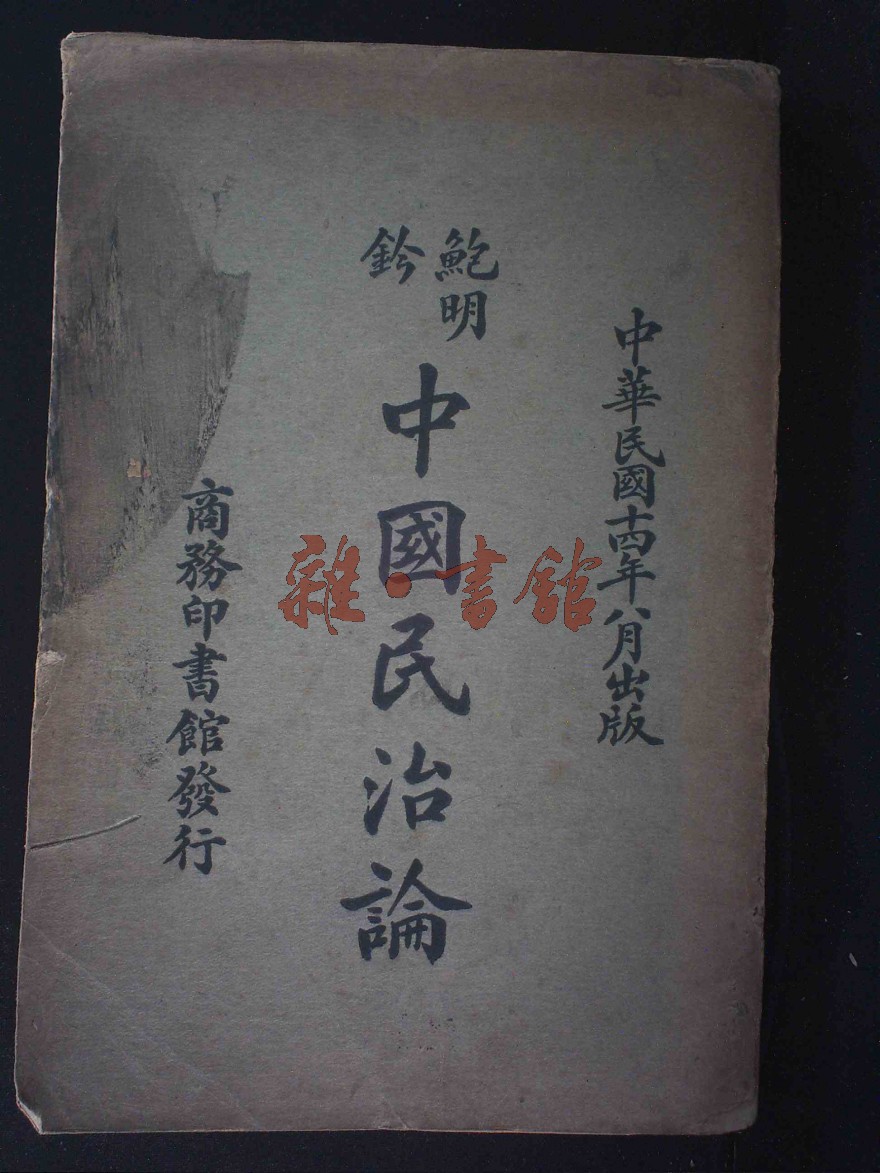 中華民國十四年八月出版
鮑明鈐
中國民治論
商務印書館發行
雜·書館